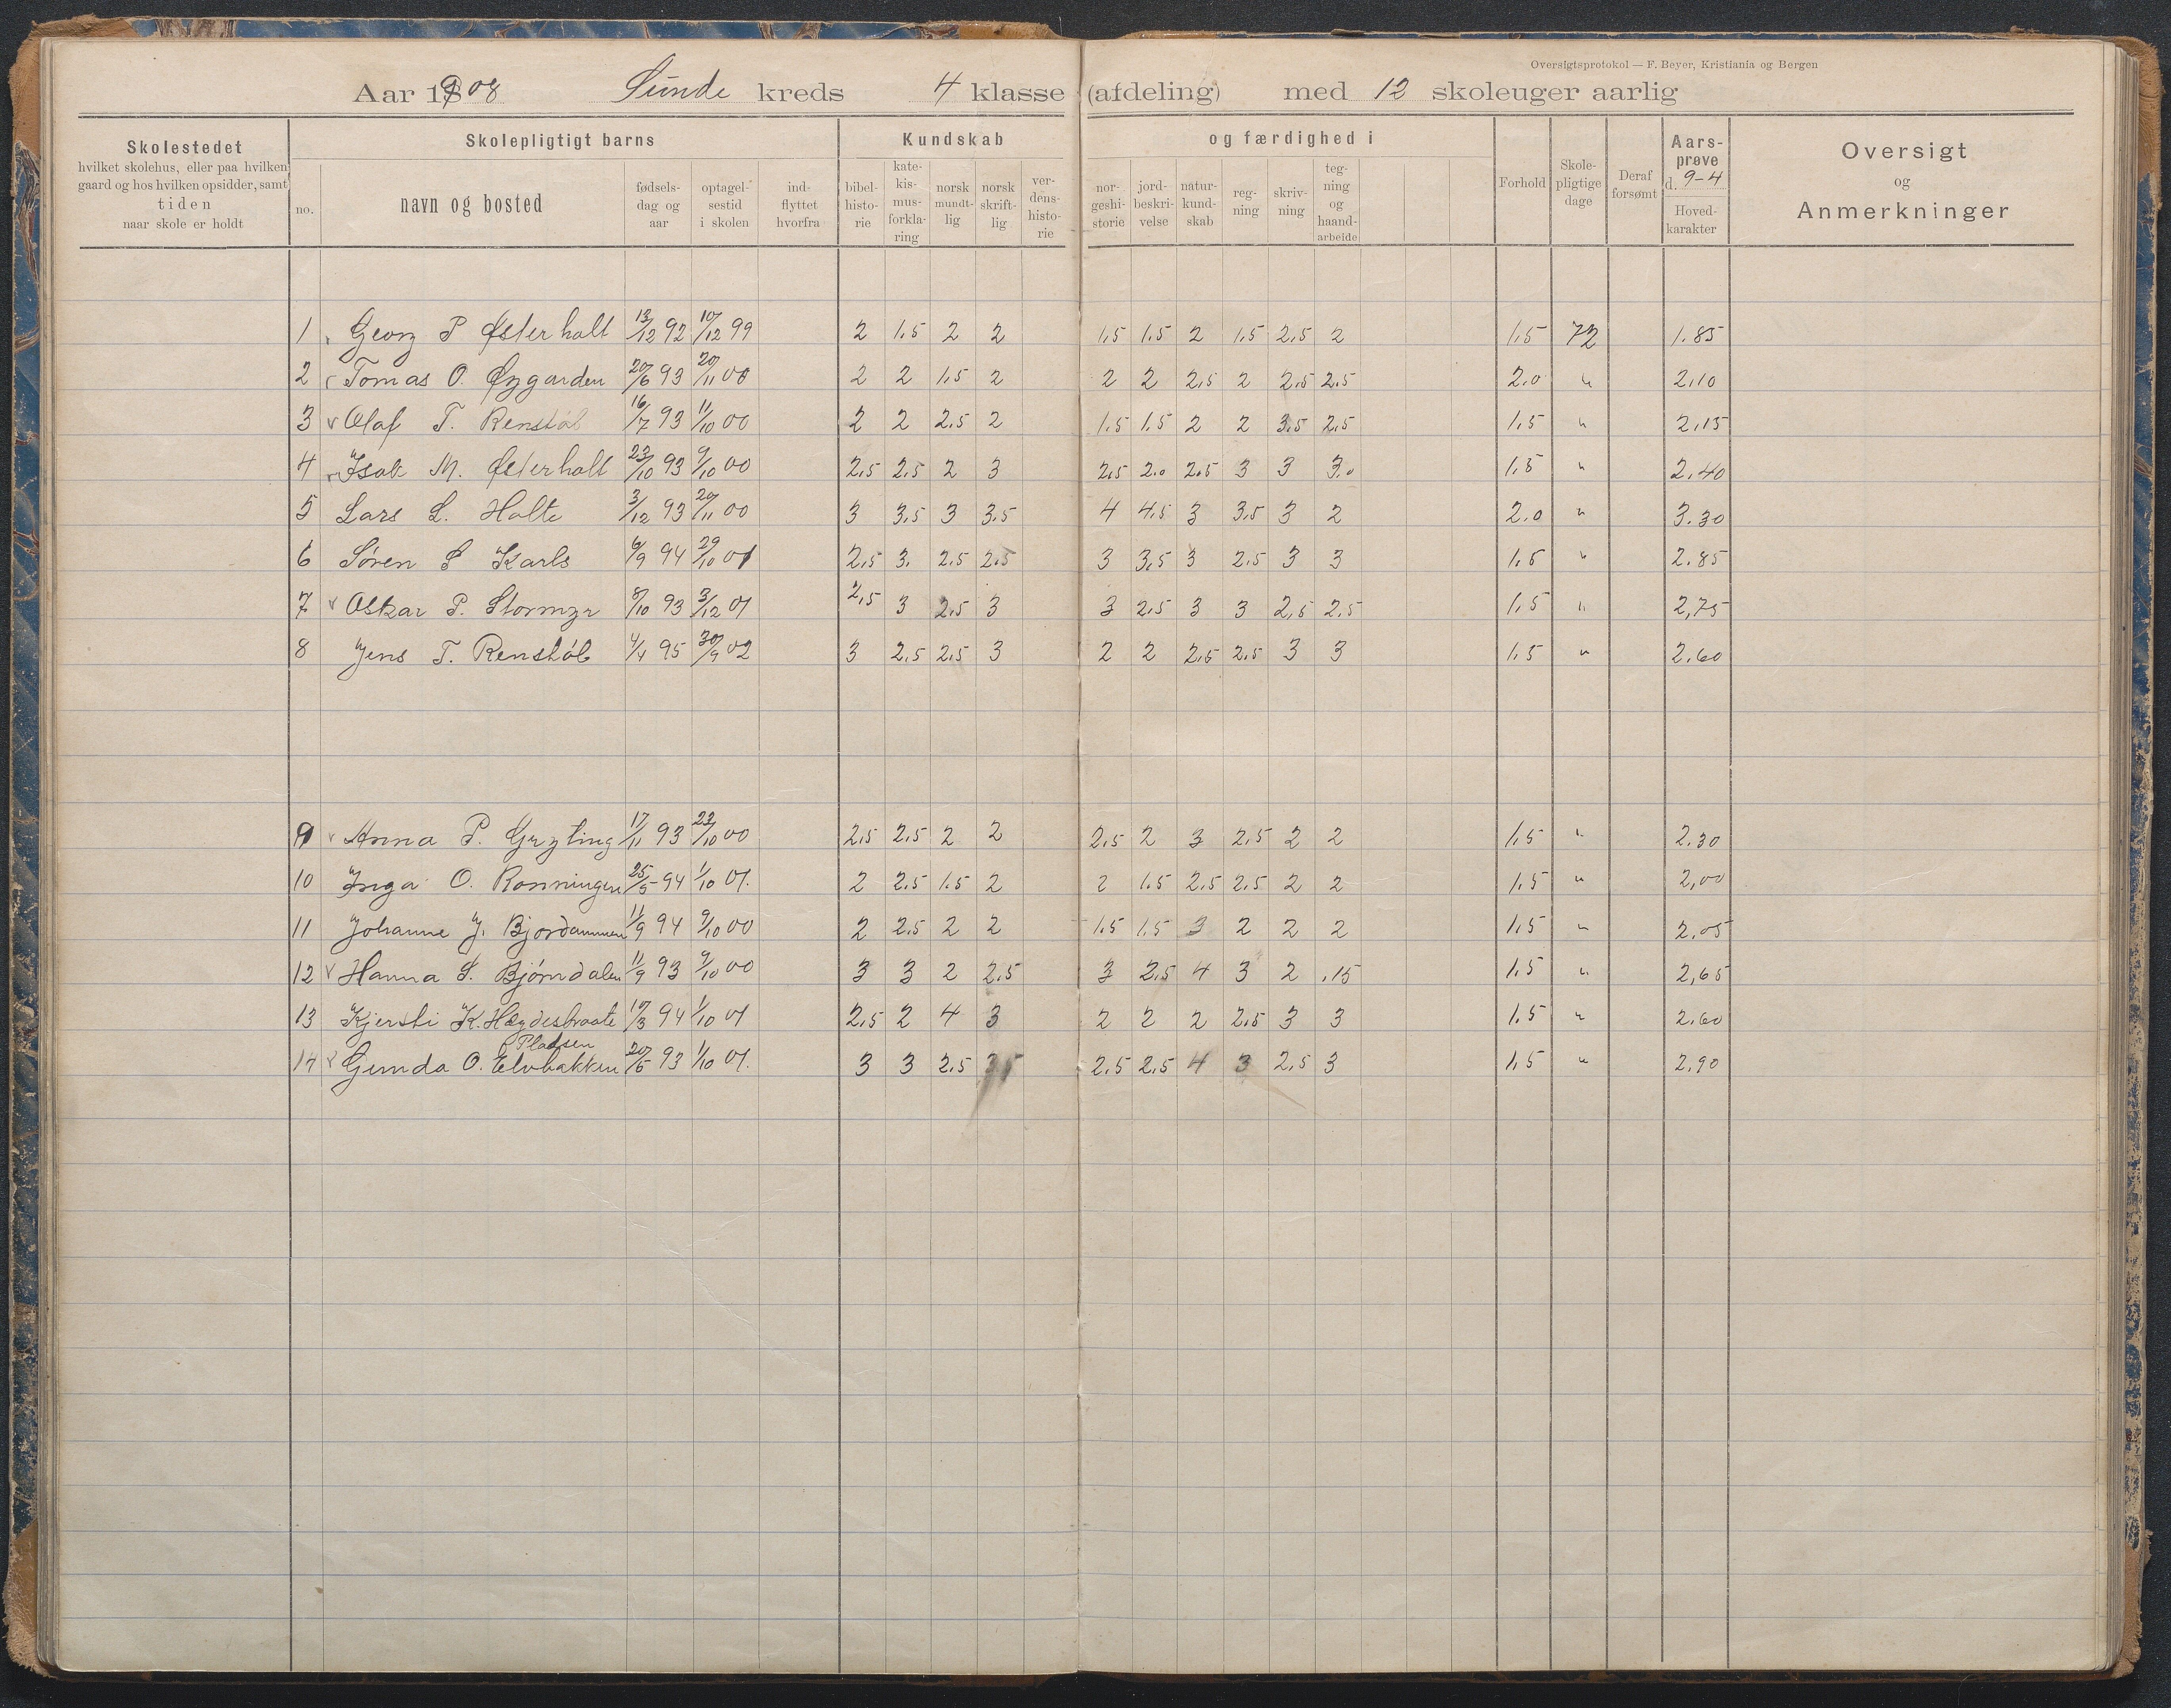 Oversigtsprotokol — F. Beyer, Kristiania og Bergen
Aar 1908 Sunde kreds 4 klasse (afdeling) med 12 skoleuger aarlig
Skolestedet hvilket skolehus, eller paa hvilken gaard og hos hvilken opsidder, samt tiden naar skole er holdt
Skolepligtigt barns
no. navn og bosted fødsels-dag og aar optagel-sestid i skolen ind-flyttet hvorfra
Kundskab og færdighed i
bibel-histo-rie kate-kis-mus-forkla-ring norsk mundt-lig norsk skrift-lig ver-dens-histo-rie nor-geshi-storie jord-beskri-velse natur-kund-skab reg-ning skriv-ning teg-ning og haand-arbeide
Forhold Skole-pligtige dage Deraf forsømt Aars-prøve d. 9-4 Hoved-karakter
Oversigt og Anmerkninger
1 Georg P Østerholt 13/12 92 10/12 99 2 1.5 2 2 1.5 1.5 2 1.5 2.5 2 1.5 72 1.85
2 Tomas O. Øygarden 20/6 93 20/11 00 2 2 1.5 2 2 2 2.5 2 2.5 2.5 2.0 " 2.10
3 Olaf T. Renstøl 16/7 93 11/10 00 2 2 2.5 2 1.5 1.5 2 2 3.5 2.5 1.5 " 2.15
4 Isak M. Østerholt 23/10 93 9/10 00 2.5 2.5 2 3 2.5 2.0 2.5 3 3 3.0 1.5 " 2.40
5 Lars L. Holte 3/12 93 20/11 00 3 3.5 3 3.5 4 4.5 3 3.5 3 2 2.0 " 3.30
6 Søren S Karls 6/9 94 29/10 01 2.5 3. 2.5 2.5 3 3.5 3 2.5 3 3 1.5 " 2.85
7 Oskar P. Stormyr 8/10 93 3/12 01 2.5 3 2.5 3 3 2.5 3 3 2.5 2.5 1.5 " 2,75
8 Jens T. Renstøl 4/4 95 30/9 02 3 2.5 2.5 3 2 2 2.5 2.5 3 3 1.5 " 2.60
9 Anna P. Gryting 17/11 93 23/10 00 2.5 2.5 2 2 2.5 2 3 2.5 2 2 1.5 " 2.30
10 Inga O. Rønningen 25/5 94 1/10 01. 2 2.5 1.5 2 2 1.5 2.5 2.5 2 2 1.5 " 2,00
11 Johanne J. Bjordammen 11/9 94 9/10 00 2 2.5 2 2 1.5 1.5 3 2 2 2 1.5 " 2.05
12 Hanna S. Bjørndalen 11/9 93 9/10 00 3 3 2 2.5 3 2.5 4 3 2 .15 1.5 " 2,65
13 Kjersti K. Høgdestraate 17/3 94 1/10 01 2.5 2 4 3 2 2 2 2.5 3 3 1.5 " 2.60
Pladsen
14 Gunda O. Elvbakken 20/5 93 1/10 01. 3 3 2.5 3.5 2.5 2.5 4 3 2.5 3 1.5 " 2.90